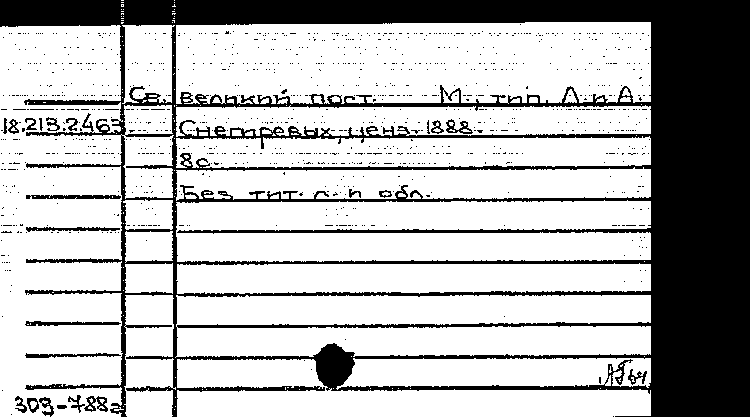 Св. великий пост. М., тип. А. и А.
18.213.2.463. Снегиревых, ценз. 1888.
8с.
Без тит. л. и обл.
309-788г